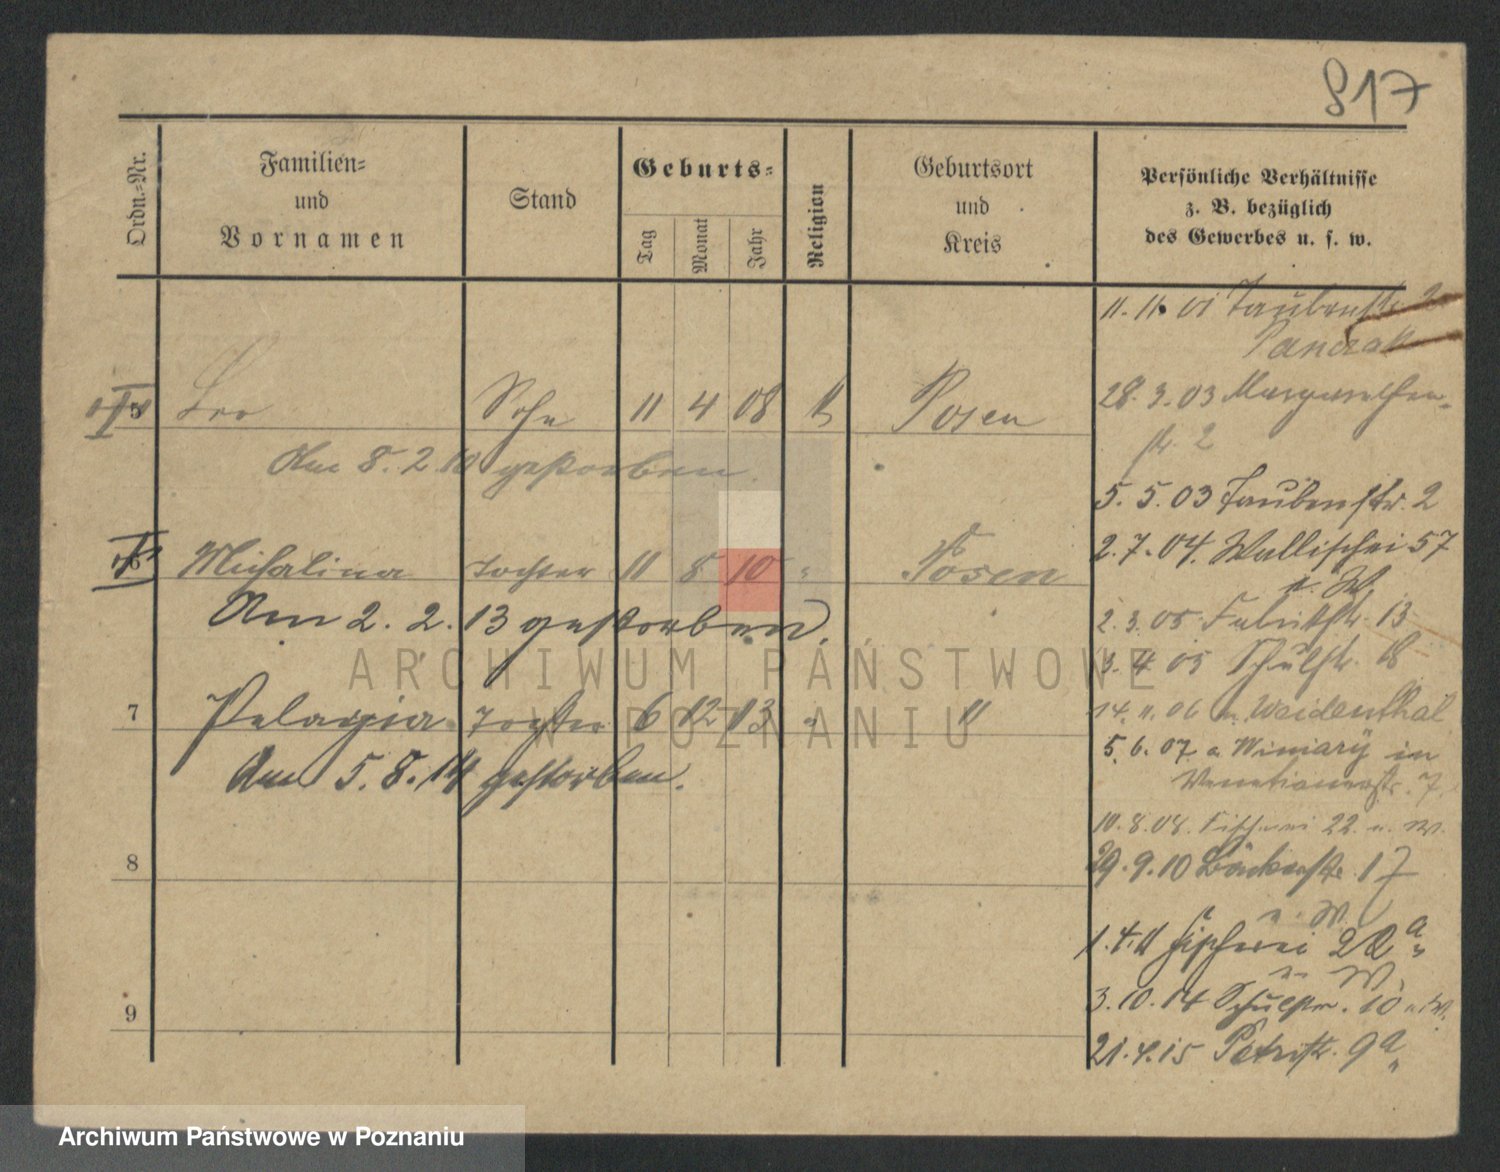 817
Ordn.=Nr.
Familien=
und
Vornamen
Stand
Geburts=
Tag
Monat
Jahr
Religion
Geburtsort
und
Kreis
Persönliche Verhältnisse
z. B. bezüglich
des Gewerbes u. s. w.
5 Leo Sohn 11 4 08 " Posen
Am 8. 2. 10 gestorben
6 Michalina Tochter 11 8 10 " Posen
Am 2. 2. 13 gestorben.
7 Pelagia Tochter 6 12 13 " "
Am 5. 8. 14 gestorben.
8
9
11. 11. 01 Taubenstr. 2
28. 3. 03 Margarethen-
str. 2
5. 5. 03 Taubenstr. 2
2. 7. 04. Wallischei 57
n. W.
2. 3. 05 Fabrikstr. 13
3. 4. 05 Schulstr. 18
14. 11. 06 n. Weidenthal
5. 6. 07 a Winiary in
Venetianerstr. 7.
10. 8. 08. Fischerei 22. n. W.
29. 9. 10 Bäckerstr. 17
n. W.
1. 4. 11 Fischerei 22 a
n. W.
3. 10. 14 Schulstr. 10 n. W.
21. 4. 15 Petristr. 9 a
ARCHIWUM PAŃSTWOWE
W POZNANIU
Archiwum Państwowe w Poznaniu